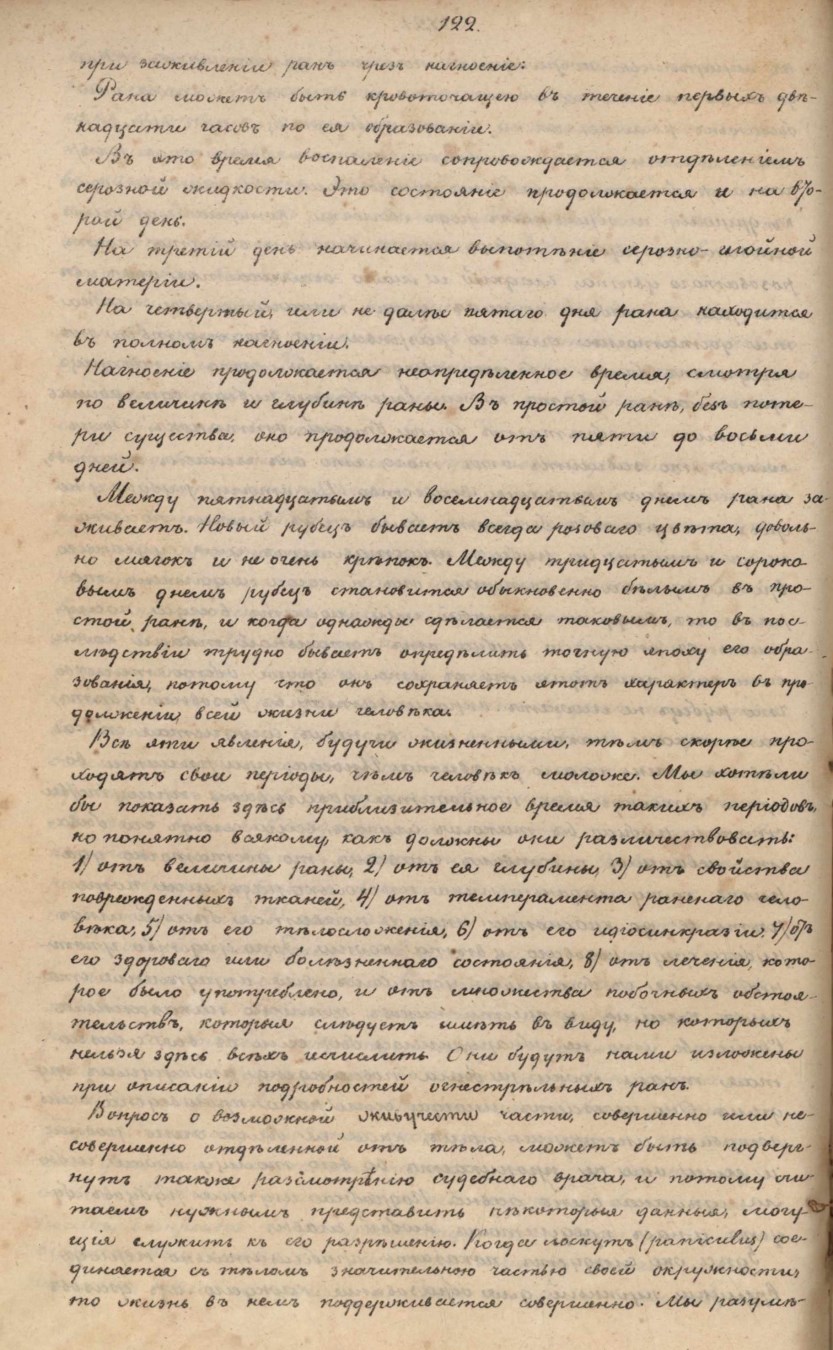 122.
при заживленіи ранъ чрезъ нагноеніе:
Рана можетъ быть кровоточащею въ теченіе первыхъ двѣ-
надцати часовъ по ея образованіи.
Въ это время воспаленіе сопровождается отдѣленіемъ
серозной жидкости. Это состояніе продолжается и на вто-
рой день.
На третій день начинается выпотѣніе серозно-гнойной
матеріи.
На четвертый, или не далѣе пятаго дня рана находится
въ полномъ нагноеніи.
Нагноеніе продолжается неопредѣленное время, смотря
по величинѣ и глубинѣ раны. Въ простой ранѣ, безъ поте-
ри существа, оно продолжается отъ пяти до восьми
дней.
Между пятнадцатымъ и восемнадцатымъ днемъ рана за-
живаетъ. Новый рубецъ бываетъ всегда розоваго цвѣта, доволь-
но мягокъ и не очень крѣпокъ. Между тридцатымъ и сороко-
вымъ днемъ рубецъ становится обыкновенно бѣлымъ въ про-
стой ранѣ, и когда однажды сдѣлается таковымъ, то въ пос-
лѣдствіи трудно бываетъ опредѣлить точную эпоху его обра-
зованія, потому что онъ сохраняетъ этотъ характеръ въ про-
долженіи всей жизни человѣка.
Всѣ эти явленія, будучи жизненными, тѣмъ скорѣе про-
ходятъ свои періоды, чѣмъ человѣкъ моложе. Мы хотѣли
бы показать здѣсь приблизительное время такихъ періодовъ,
но понятно всякому, какъ должны они различествовать:
1) отъ величины раны, 2) отъ ея глубины, 3) отъ свойства
поврежденныхъ тканей, 4) отъ темперамента раненаго чело-
вѣка, 5) отъ его тѣлосложенія, 6) отъ его идіосинкразіи, 7) отъ
его здороваго или болѣзненнаго состоянія, 8) отъ леченія, кото-
рое было употреблено, и отъ множества побочныхъ обстоя-
тельствъ, которыя слѣдуетъ имѣть въ виду, но которыхъ
нельзя здѣсь всѣхъ исчислить. Они будутъ нами изложены
при описаніи подробностей огнестрѣльныхъ ранъ.
Вопросъ о возможной живучести части, совершенно или не-
совершенно отдѣленной отъ тѣла, можетъ быть подверг-
нутъ также разсмотрѣнію судебнаго врача, и потому счи-
таемъ нужнымъ представить нѣкоторыя данныя, могу-
щія служить къ его разрѣшенію. Когда лоскутъ (panniculus) сое-
диняется съ тѣломъ значительною частью своей окружности,
то жизнь въ немъ поддерживается совершенно. Мы разумѣ-